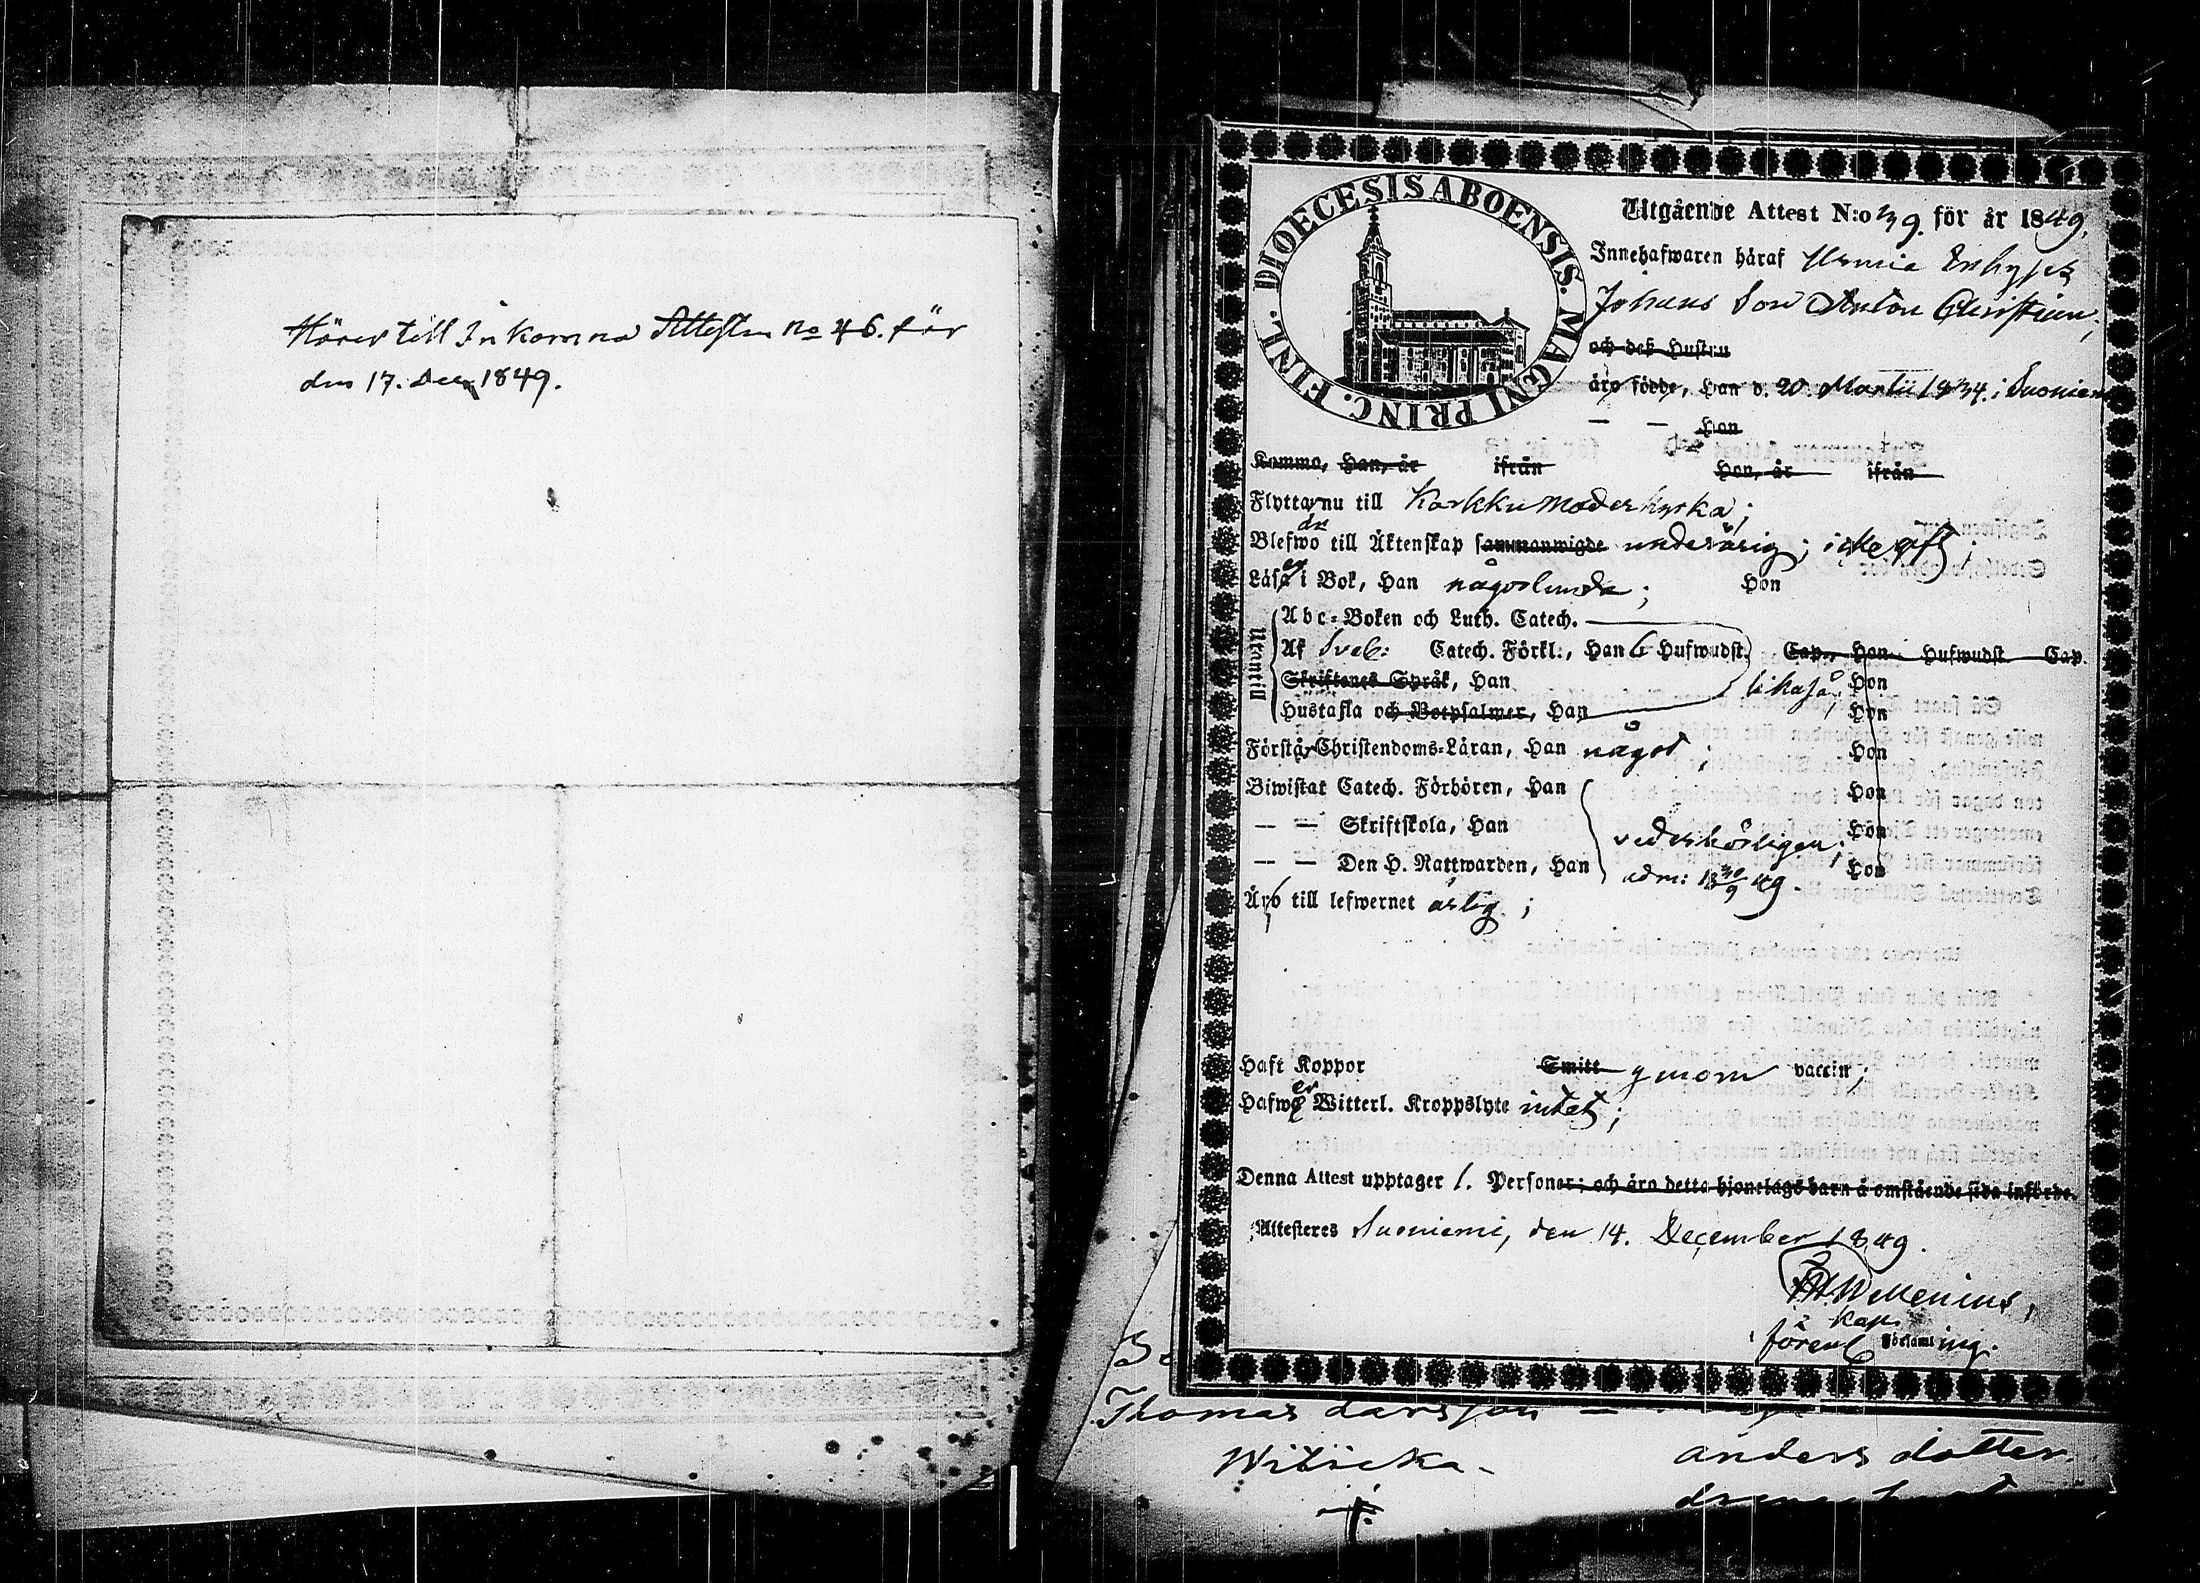 Hörer till Inkomna Attesten No 46. för
den 17. Dec. 1849.
DIOECESIS ABOENSIS. MAGNI PRINC. FINL.
Utgående Attest N:o 39. för år 1849.
Innehafwaren häraf
Johans Son Anton Christian,
och deß Hustru
äro födde, Han d. 20. Martii 1834. i Suoniemi
— — Hon
Kommo, Han, år ifrån Hon, år ifrån
Flyttar nu till Karkku Moderkyrka;
Blefwo till Äktenskap sammanwigde underårig; icke gift;
Läser i Bok, Han någorlunda; Hon
Utantill
Abc-Boken och Luth. Catech.
Af Sveb: Catech. Förkl., Han 6 Hufwudst. Cap., Hon Hufwudst. Cap.
Skriftenes Språk, Han likaså; Hon
Hustafla och Botpsalmer, Han Hon
Förstår Christendoms-Läran, Han något; Hon
Biwistat Catech. Förhören, Han Hon
— — Skriftskola, Han vederbörligen; Hon
— — Den H. Nattwarden, Han adm: 18 30/9 49. Hon
Är till lefwernet ärlig;
Haft Koppor Smitt genom vaccin;
Hafwer Witterl. Kroppslyte intet;
Denna Attest upptager 1. Personer; och äro detta hjonelags barn å omstående sida införde.
Attesteres Suoniemi, den 14. December 1849.
Wellenius,
Kap.
i förenl Församl ing.
Thomas Larsson —
Anders dotter